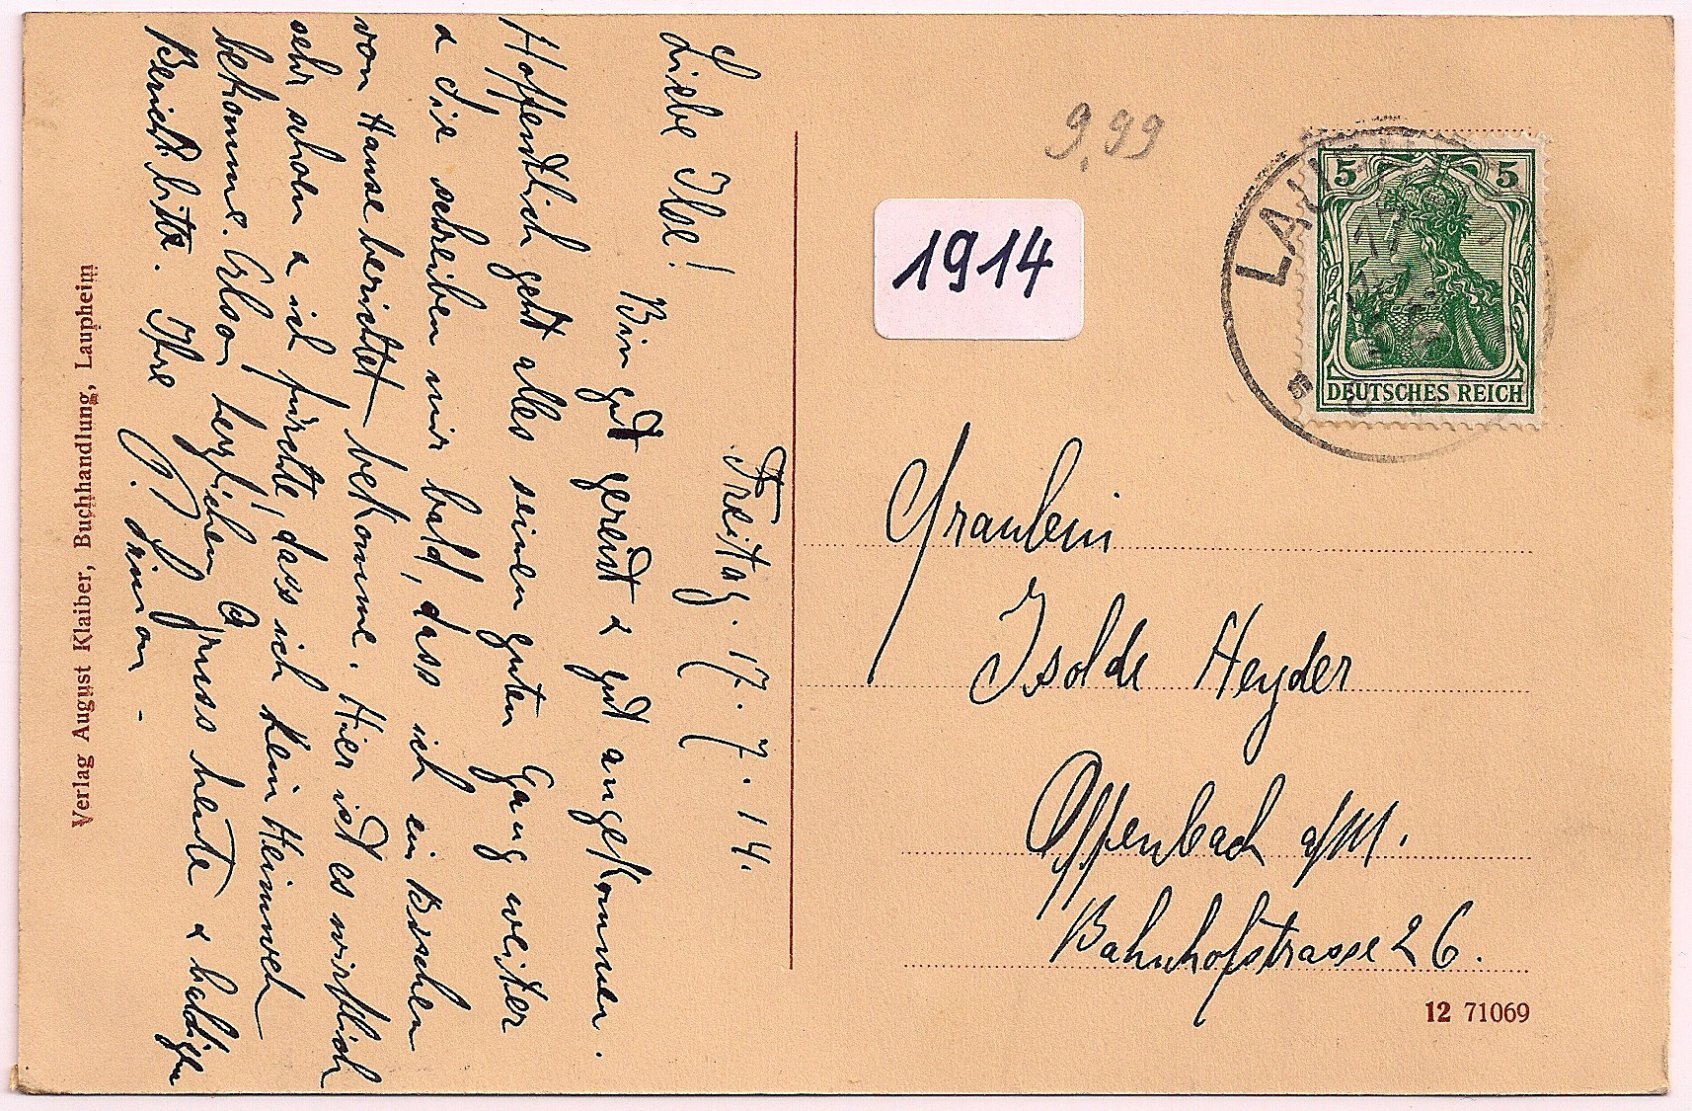 Freitag. 17. 7. 14.
Liebe Ilse!
Bin gut gereist & gut angekommen.
Hoffentlich geht alles seinen guten Gang weiter
& Sie schreiben mir bald, dass ich ein Bischen
von Hause berichtet bekomme. Hier ist es wirklich
sehr schön & ich fürchte, dass ich kein Heimweh
bekomme. Also herzlichen Gruss heute & baldigen
Bericht bitte. Ihre
Verlag August Klaiber, Buchhandlung, Laupheim
9,99
1914
LAUPH
17
5 5
DEUTSCHES REICH
Fräulein
Isolde Heyder
Offenbach a/M.
Bahnhofstrasse 26.
12 71069